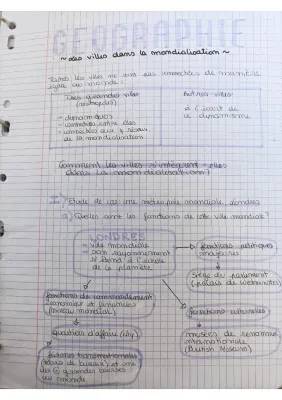 GEOGRAPHIE
~ des villes dans la mondialisation ~
Toutes les villes ne sont pas connectées de manière
égale au monde :
Des grandes villes
(métropoles)
- dynamiques
- connectées entre elles
- connectées aux réseaux
de la mondialisation
Autres villes
à l'écart de
ce dynamisme
Comment les villes s'intègrent-elles
dans la mondialisation ?
I) Etude de cas une métropole mondiale, Londres
a) Quelles sont les fonctions de cette ville mondiale ?
LONDRES
- ville mondiale
- son rayonnement
s'étend à l'échelle
de la planète
fonctions politiques
majeures
siège du parlement
(palais de Westminster)
fonctions de commandement
économique et financières
(niveau mondial)
quartiers d'affaire (city)
firmes transnationales
et une
des grandes bourses
au monde
fonctions culturelles
musées de renommée
internationale
(British Museum)